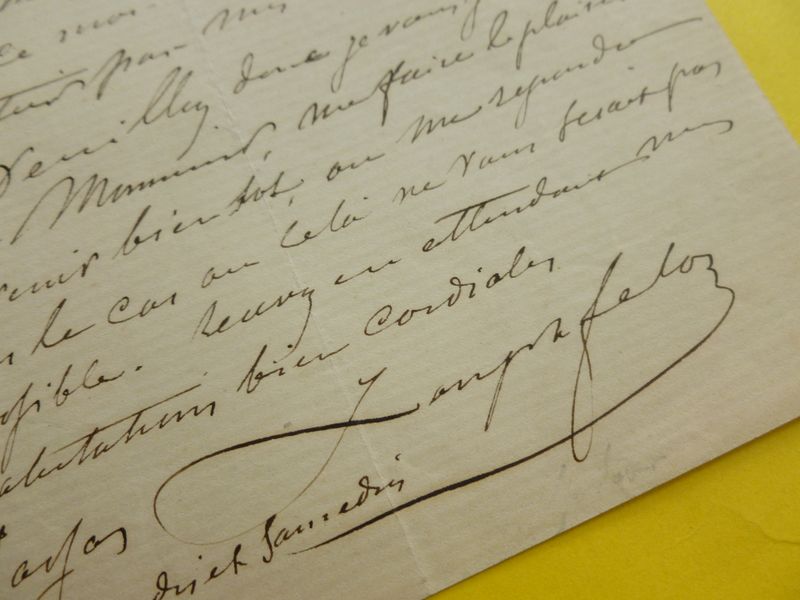 ce moi
pas mis
Veuillez donc je vous
Monsieur, me faire le plaisir
venir bientot, ou me repondre
le cas ou cela ne vous serait pas
possible. Recevez en attendant mes
salutations bien cordiales
Joseph
et Samedis